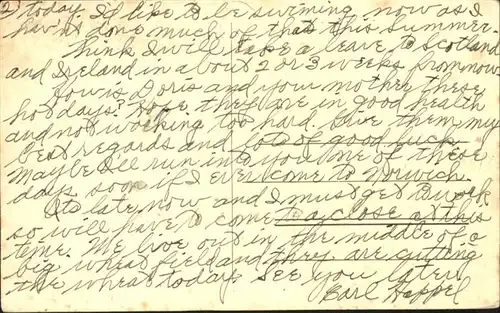 2) today. I'd like to be swiming now as I
haven't done much of that this summer.
Think I will take a leave to Scotland
and Ireland in about 2 or 3 weeks from now.
How is Doris and your mother these
hot days? Hope they are in good health
and not working too hard. Give them my
best regards and lots of good luck.
Maybe I'll run into you one of these
days soon if I ever come to Norwich.
Its late now and I must get to work
so will have to come to a close at this
time. We live out in the middle of a
big wheat field and they are cutting
the wheat today. See you later
Earl Heppel